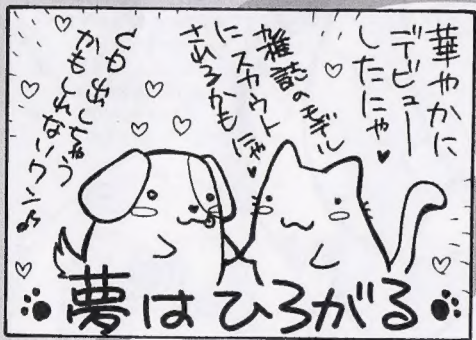 華やかに
デビュー
したにゃ♥
雑誌のモデル
にスカウト
されるかも
にゃ♥
も出しちゃう
かもしれないワン♪
夢はひろがる